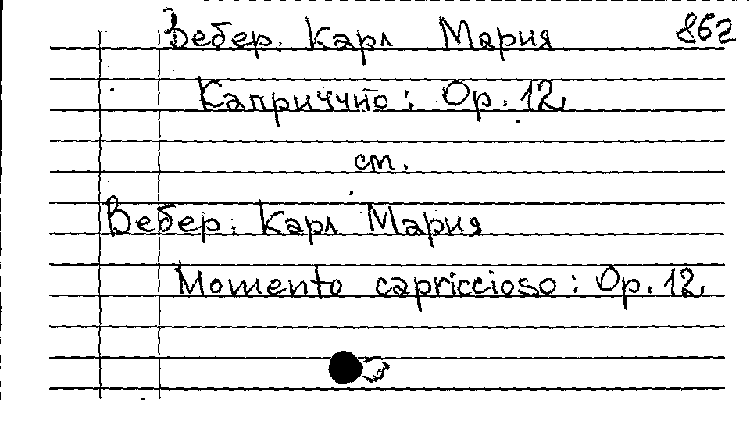 Вебер. Карл Мария 862
Каприччио: Ор. 12.
см.
Вебер. Карл Мария
Momento capriccioso: Op. 12.